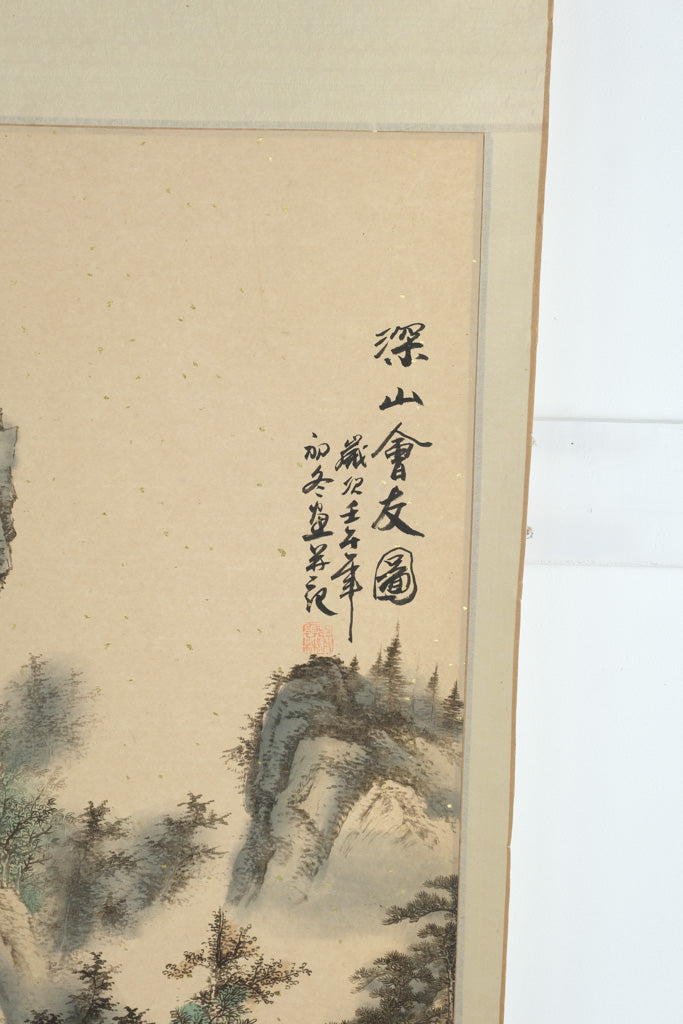 深山會友圖
歲次壬午年
初冬畫並記